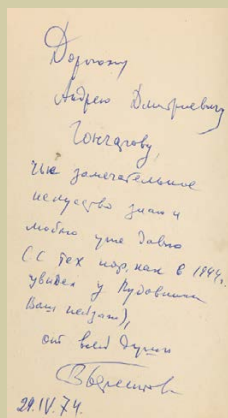 Дорогому
Андрею Дмитриевичу
Гончарову,
чье замечательное
искусство знаю и
люблю уже давно
(с тех пор, как в 1944 г.
увидел у
Ваш пейзаж),
от всей души
ВБерестов
29.IV.74.